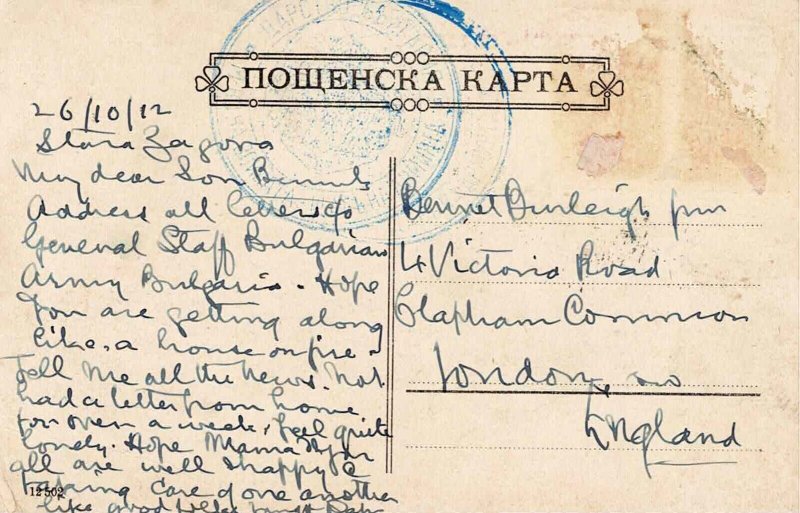 ПОЩЕНСКА КАРТА
26/10/12
Stara Zagora
My dear Son Bennet
Address all letters c/o
General Staff Bulgarian
Army Bulgaria - Hope
You are getting along
like a house on fire -
Tell me all the news. Not
had a letter from home
for over a week, feel quite
lonely. Hope Mama &
all are well & happy &
taking care of one another
like good
12502
Bennet Burleigh jun
4 Victoria Road
Clapham Common
London, SW
England